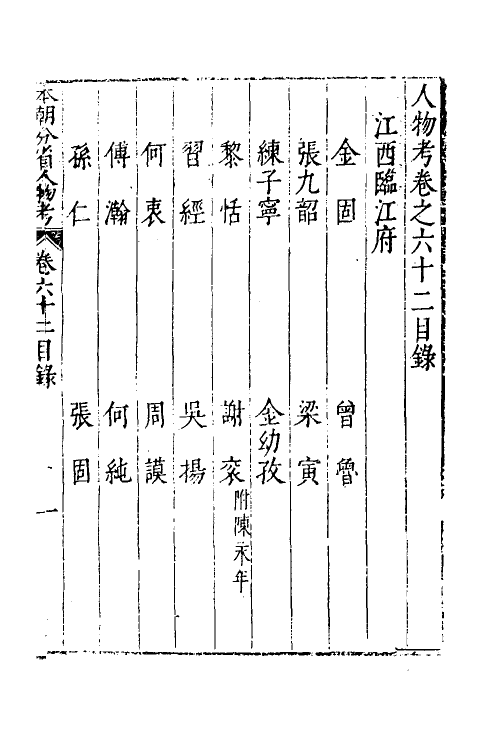 人物考卷之六十二目錄
江西臨江府
金固 曾魯
張九韶 梁寅
練子寧 金幼孜
黎恬 謝衮附陳永年
習經 吳揚
何衷 周謨
傅瀚 何純
孫仁 張固
本朝分省人物考 卷六十二目錄 一